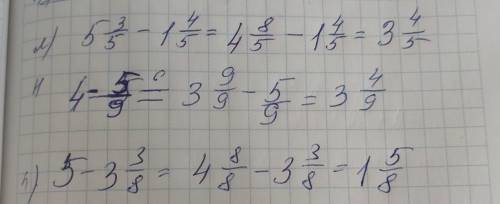 м) 5 3/5 - 1 4/5 = 4 8/5 - 1 4/5 = 3 4/5
н) 4 - 5/9 = 3 9/9 - 5/9 = 3 4/9
п) 5 - 3 3/8 = 4 8/8 - 3 3/8 = 1 5/8